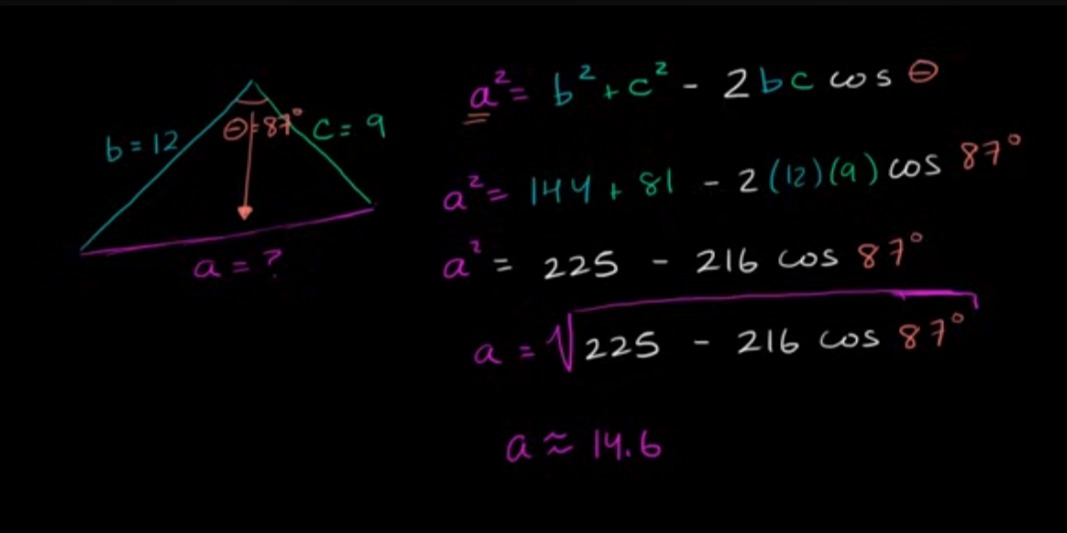 b = 12
θ = 87°
c = 9
a = ?
a² = b² + c² - 2bc cos θ
a² = 144 + 81 - 2(12)(9) cos 87°
a² = 225 - 216 cos 87°
a = √225 - 216 cos 87°
a ≈ 14.6